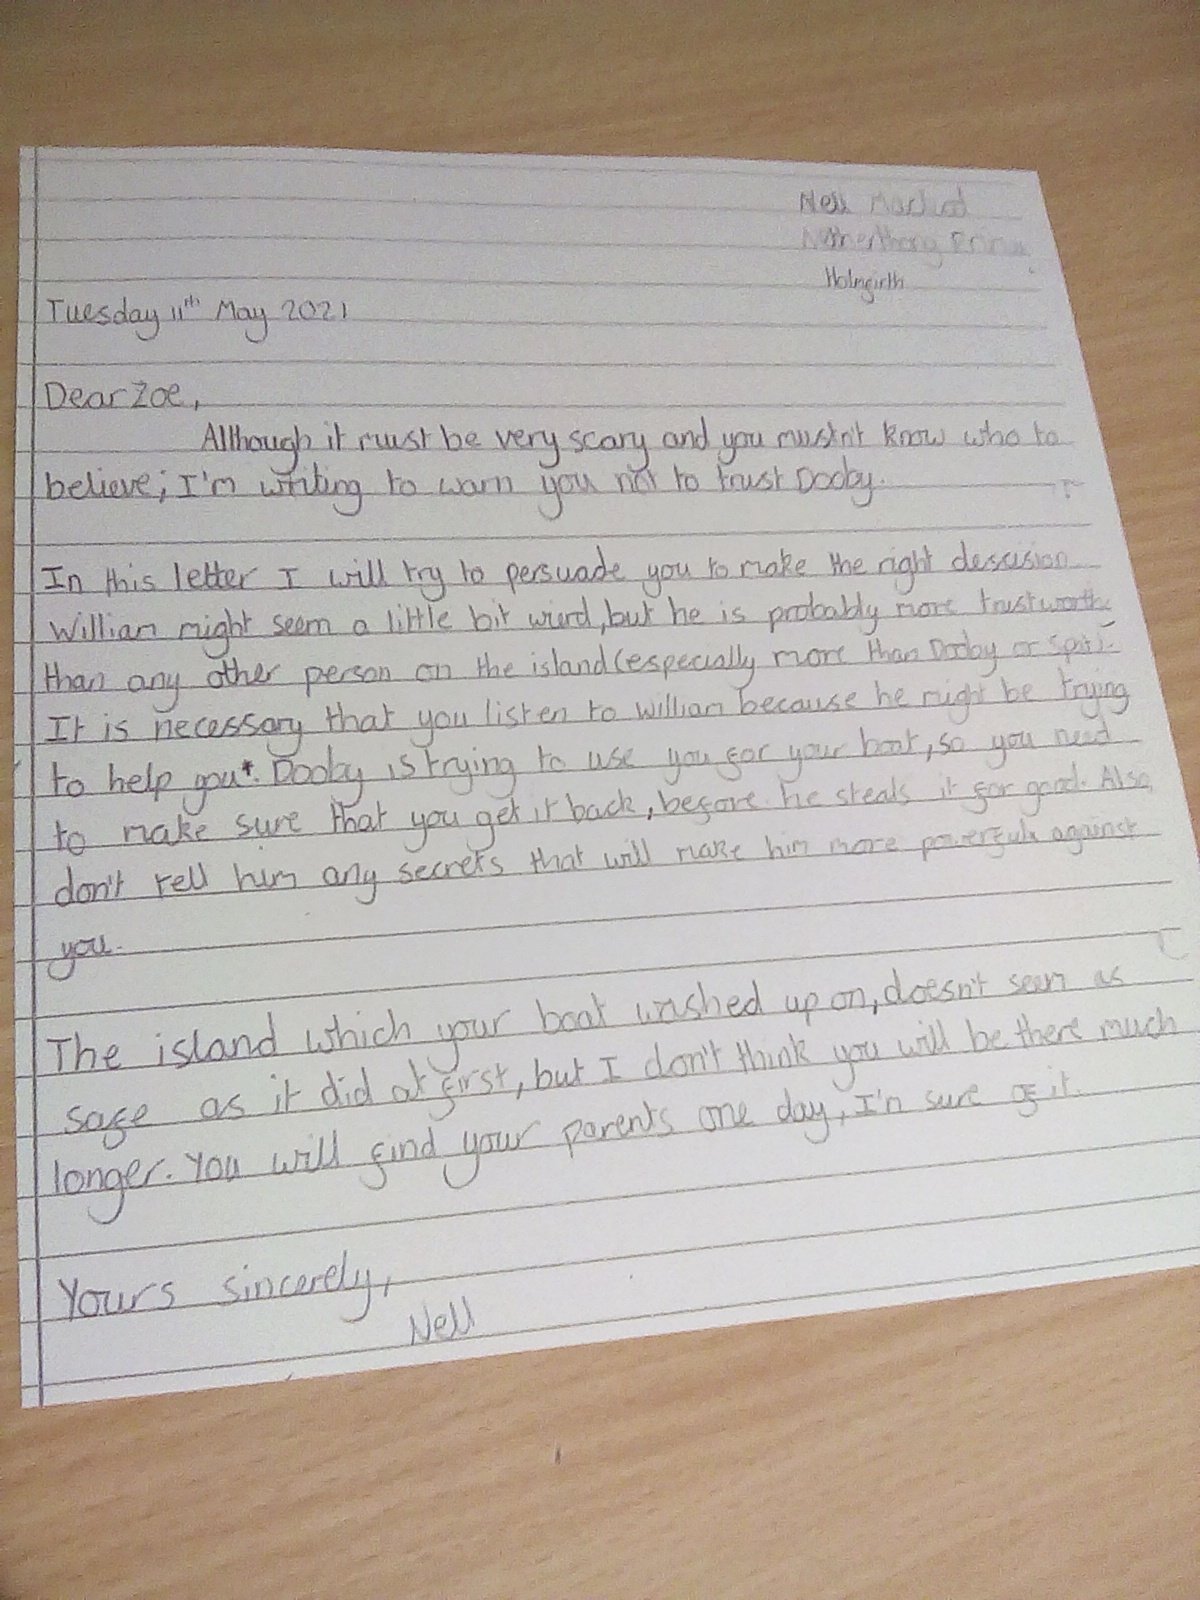 Nell
Netherthong
Holmfirth
Tuesday 11th May 2021
Dear Zoe,
Although it must be very scary and you mustn't know who to
believe; I'm writing to warn you not to trust Dooby.
In this letter I will try to persuade you to make the right descision
William might seem a little bit wierd, but he is probably more
than any other person on the island (especially more than Dooby or
It is necessary that you listen to William because he might be trying
to help you. Dooby is trying to use you for your boat, so you need
to make sure that you get it back, before he steals it for good. Also,
don't tell him any secrets that will make him more powerfull against
you.
The island which your boat washed up on, doesn't seem as
safe as it did at first, but I don't think you will be there much
longer. You will find your parents one day, I'm sure of it.
Yours sincerely,
Nell